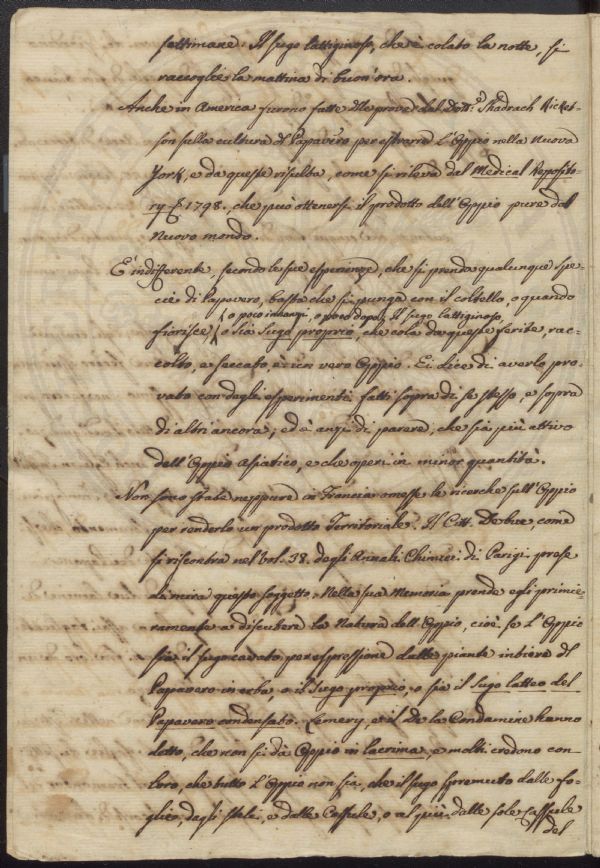 settimane. Il sugo lattiginoso, che è colato la notte, si
raccoglie la mattina di buon'ora.
Anche in America furono fatte delle prove dal Dott.e Shadrach Ricket-
son sulla cultura del Papavero per estrarre l'Oppio nella Nuova
York, e da queste risulta, come si rileva dal Medical Repposito-
ry 1798. che può ottenersi il prodotto dell'Oppio pure dal
Nuovo mondo.
È indifferente, secondo le sue esperienze, che si prenda qualunque spe-
cie di Papavero, basta che si punga con il coltello, o quando
o poco innanzi, o poco dopo. Il sugo lattiginoso,
fiorisce, o sia sugo proprio, che cola da queste ferite, rac-
colto, e seccato, è un vero Oppio. Ei dice di averlo pro-
vato con degli esperimenti fatti sopra di se stesso, e sopra
di altri ancora; ed è anzi di parere, che sia più attivo
dell'Oppio Asiatico, e che operi in minor quantità.
Non sono state neppure in Francia omesse le ricerche sull'Oppio
per renderlo un prodotto Territoriale. Il Citt. Debue, come
si riscontra nel Vol. 38. degli Annali Chimici di Parigi prese
di mira questo soggetto. Nella sua Memoria prende egli primie-
ramente a discutere la Natura dell'Oppio, cioè se l'Oppio
sia il sugo cavato per espressione dalle piante intiere del
Papavero in erba, o il sugo proprio, o sia il sugo latteo del
Papavero condensato. Lemery, e il De la Condamine hanno
detto, che non si dà Oppio in lacrima, e molti credono con
loro, che tutto l'Oppio non sia, che il sugo spremuto dalle fo-
glie, dagli steli, e dalle Cassule, o al più dalle sole Cassule
del